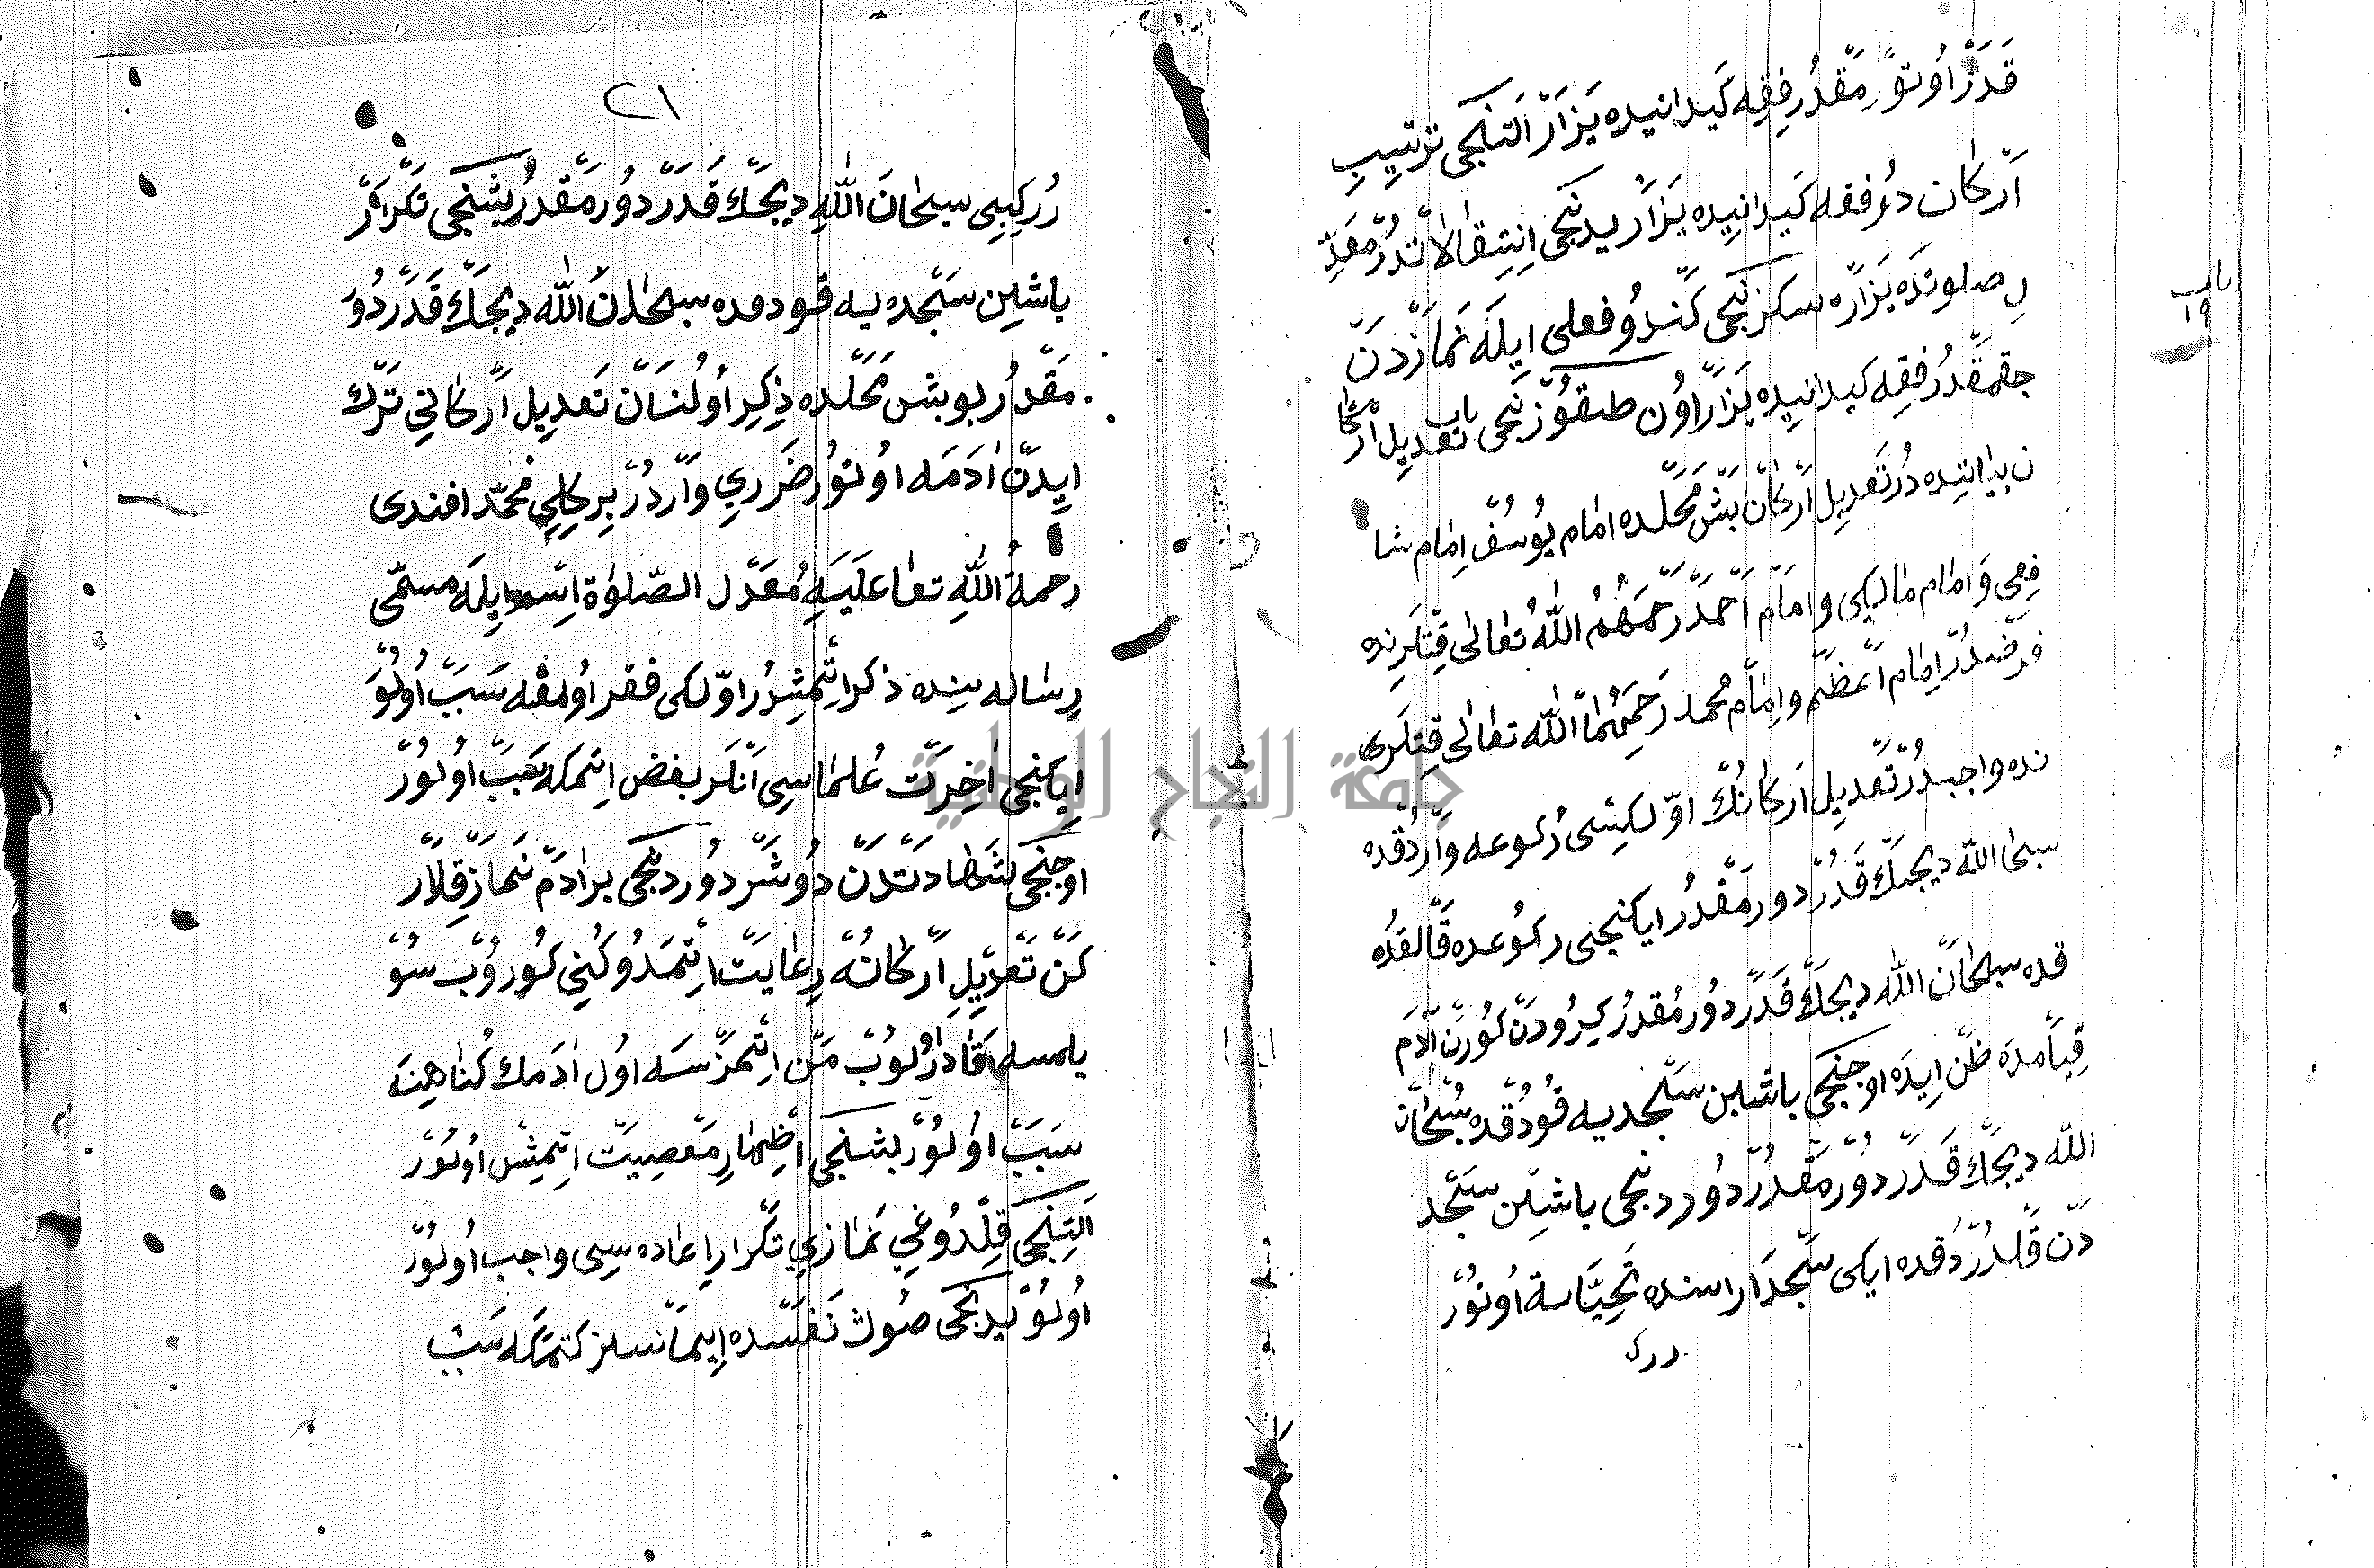 قدر اوتور مقدر فقه كيدانيده يزار التنجى ترتيب
اركان در فقه كيدانيده يزار يدنجى انتقالاتدر معد
ل صلوتده يزاره سكزنجى كندو فعلى ايله نمازدن
جقمقدر فقه كيدانيده يزار اون طقوزنجى باب تعديل اركا
ن بياننده در تعديل اركان بش محلده امام يوسف امام شا
فعى و امام مالكى و امام احمد رحمهم الله تعالى قتلرنده
فرضدر امام اعظم و امام محمد رحمهما الله تعالى قتلرى
نده واجبدر تعديل اركانك اولكيسى ركوعه واردقده
سبحا الله ديجك قدر دور مقدر ايكنجى ركوعده قالقد
قده سبحان الله ديجك قدر دور مقدر كيرودن كورن ادم
قيامده ظن ايده اوجنجى باشين سجديه قودقده سبحان
الله ديجك قدر دور مقدر دوردنجى باشين سجد
دن قلدردقده ايكى سجدا راسنده تحياسة اوتور
باب
١٩
٢١
سبحان الله ديجك قدر دور مقدر بشنجى تكرار
باشين سجده يه قودمده سبحان الله ديجك قدر دو
مقدر بو بش محلده ذكر اولنان تعديل اركانى ترك
ايدن ادمه اوتوز ضررى واردر بركلى محمد افندى
رحمة الله تعا عليه معدل الصلوة اسمايله مسمى
رساله سنده ذكر اتمشدر اولكى فقر اولمقله سبب اولو
ايكنجى اخرت علماسى انلر بغض اتمكه سبب اولور
اوجنجى شهادتدن دوشر دوردنجى بر ادم نماز قلار
كن تعديل اركانه رعايت اتمدوكنى كوروب سو
يلمسه قادر لوب من اتمزسه اول ادمك كناهنه
سبب اولور بشنجى اظهار معصيت اتمش اولور
التنجى قلدوغى نمازى تكرار اعاده سى واجب اولور
اولو يدنجى صوك نفسده ايمانسز كتمكه سبب